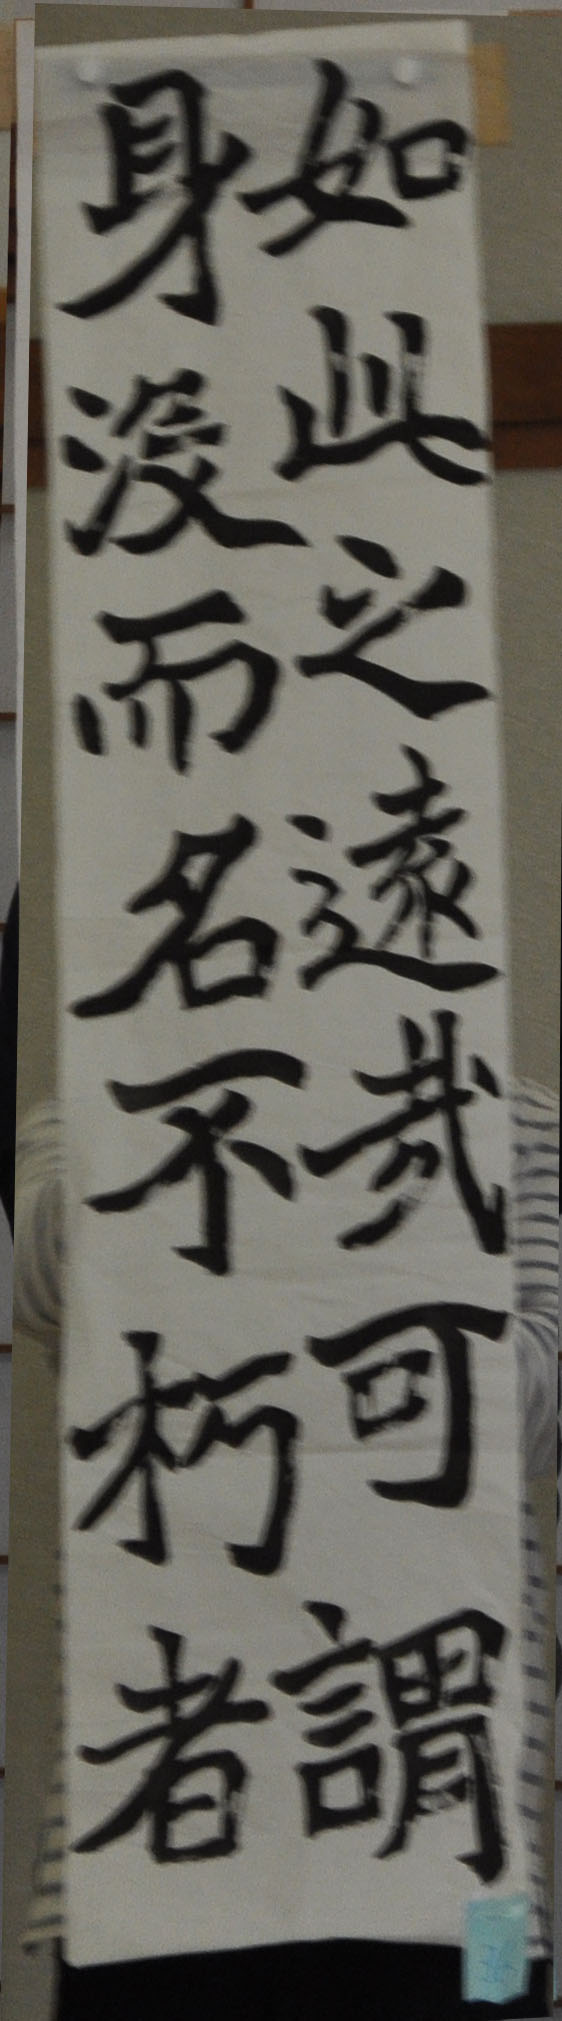 如此之遠哉可謂
身没而名不朽者
36